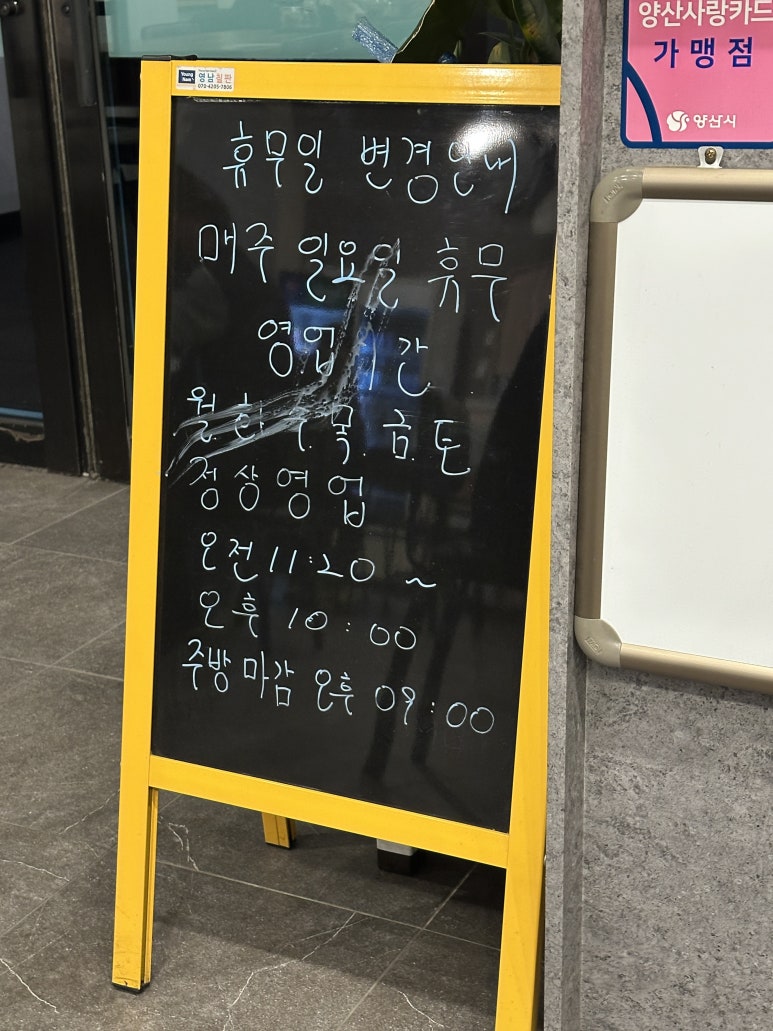 Young Nam
영남칠판
070-4205-7806
휴무일 변경안내
매주 일요일 휴무
영업시간
월.화.수.목.금.토
정상영업
오전 11:20 ~
오후 10:00
주방마감 오후 09:00
양산사랑카드
가맹점
양산시